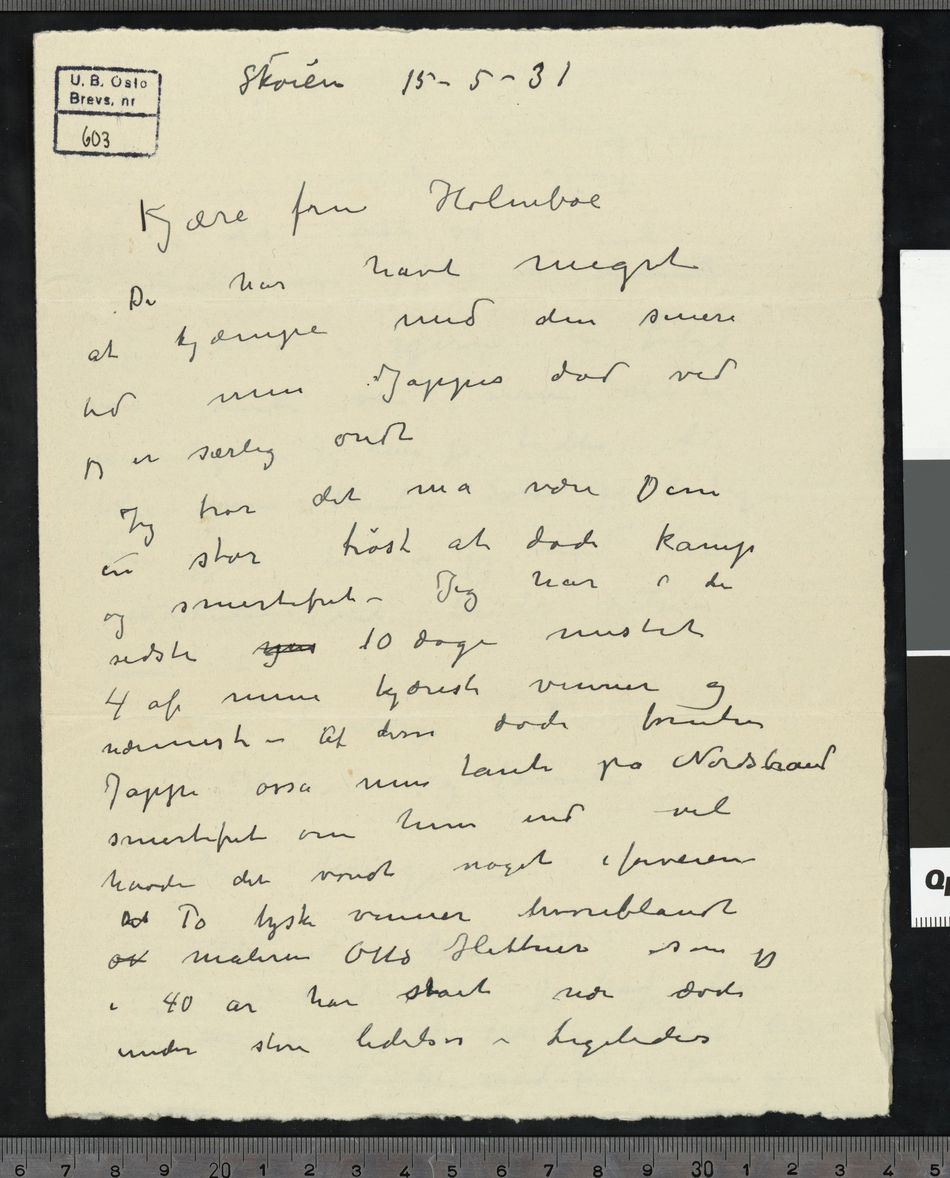 U. B. Oslo
Brevs. nr
603
Skøien 15-5-31
Kjære fru Holmboe
De har havt meget
at kjæmpe med den senere
tid men Jappes død ved
jeg er særlig ondt
Jeg tror det må være Dem
en stor trøst at døde kamp
og smertefrit – Jeg har i de
sidste 10 dage mistet
4 af mine kjæreste venner og
nærmeste – Af disse døde foruden
Jappe osså min tante på Nordstrand
smertefrit om hun end vel
havde det vondt noget iforveien
To tyske venner hvoriblandt
maleren Otto Hettner som jeg
i 40 år har stået nær døde
under store lidelser – Ligeledes